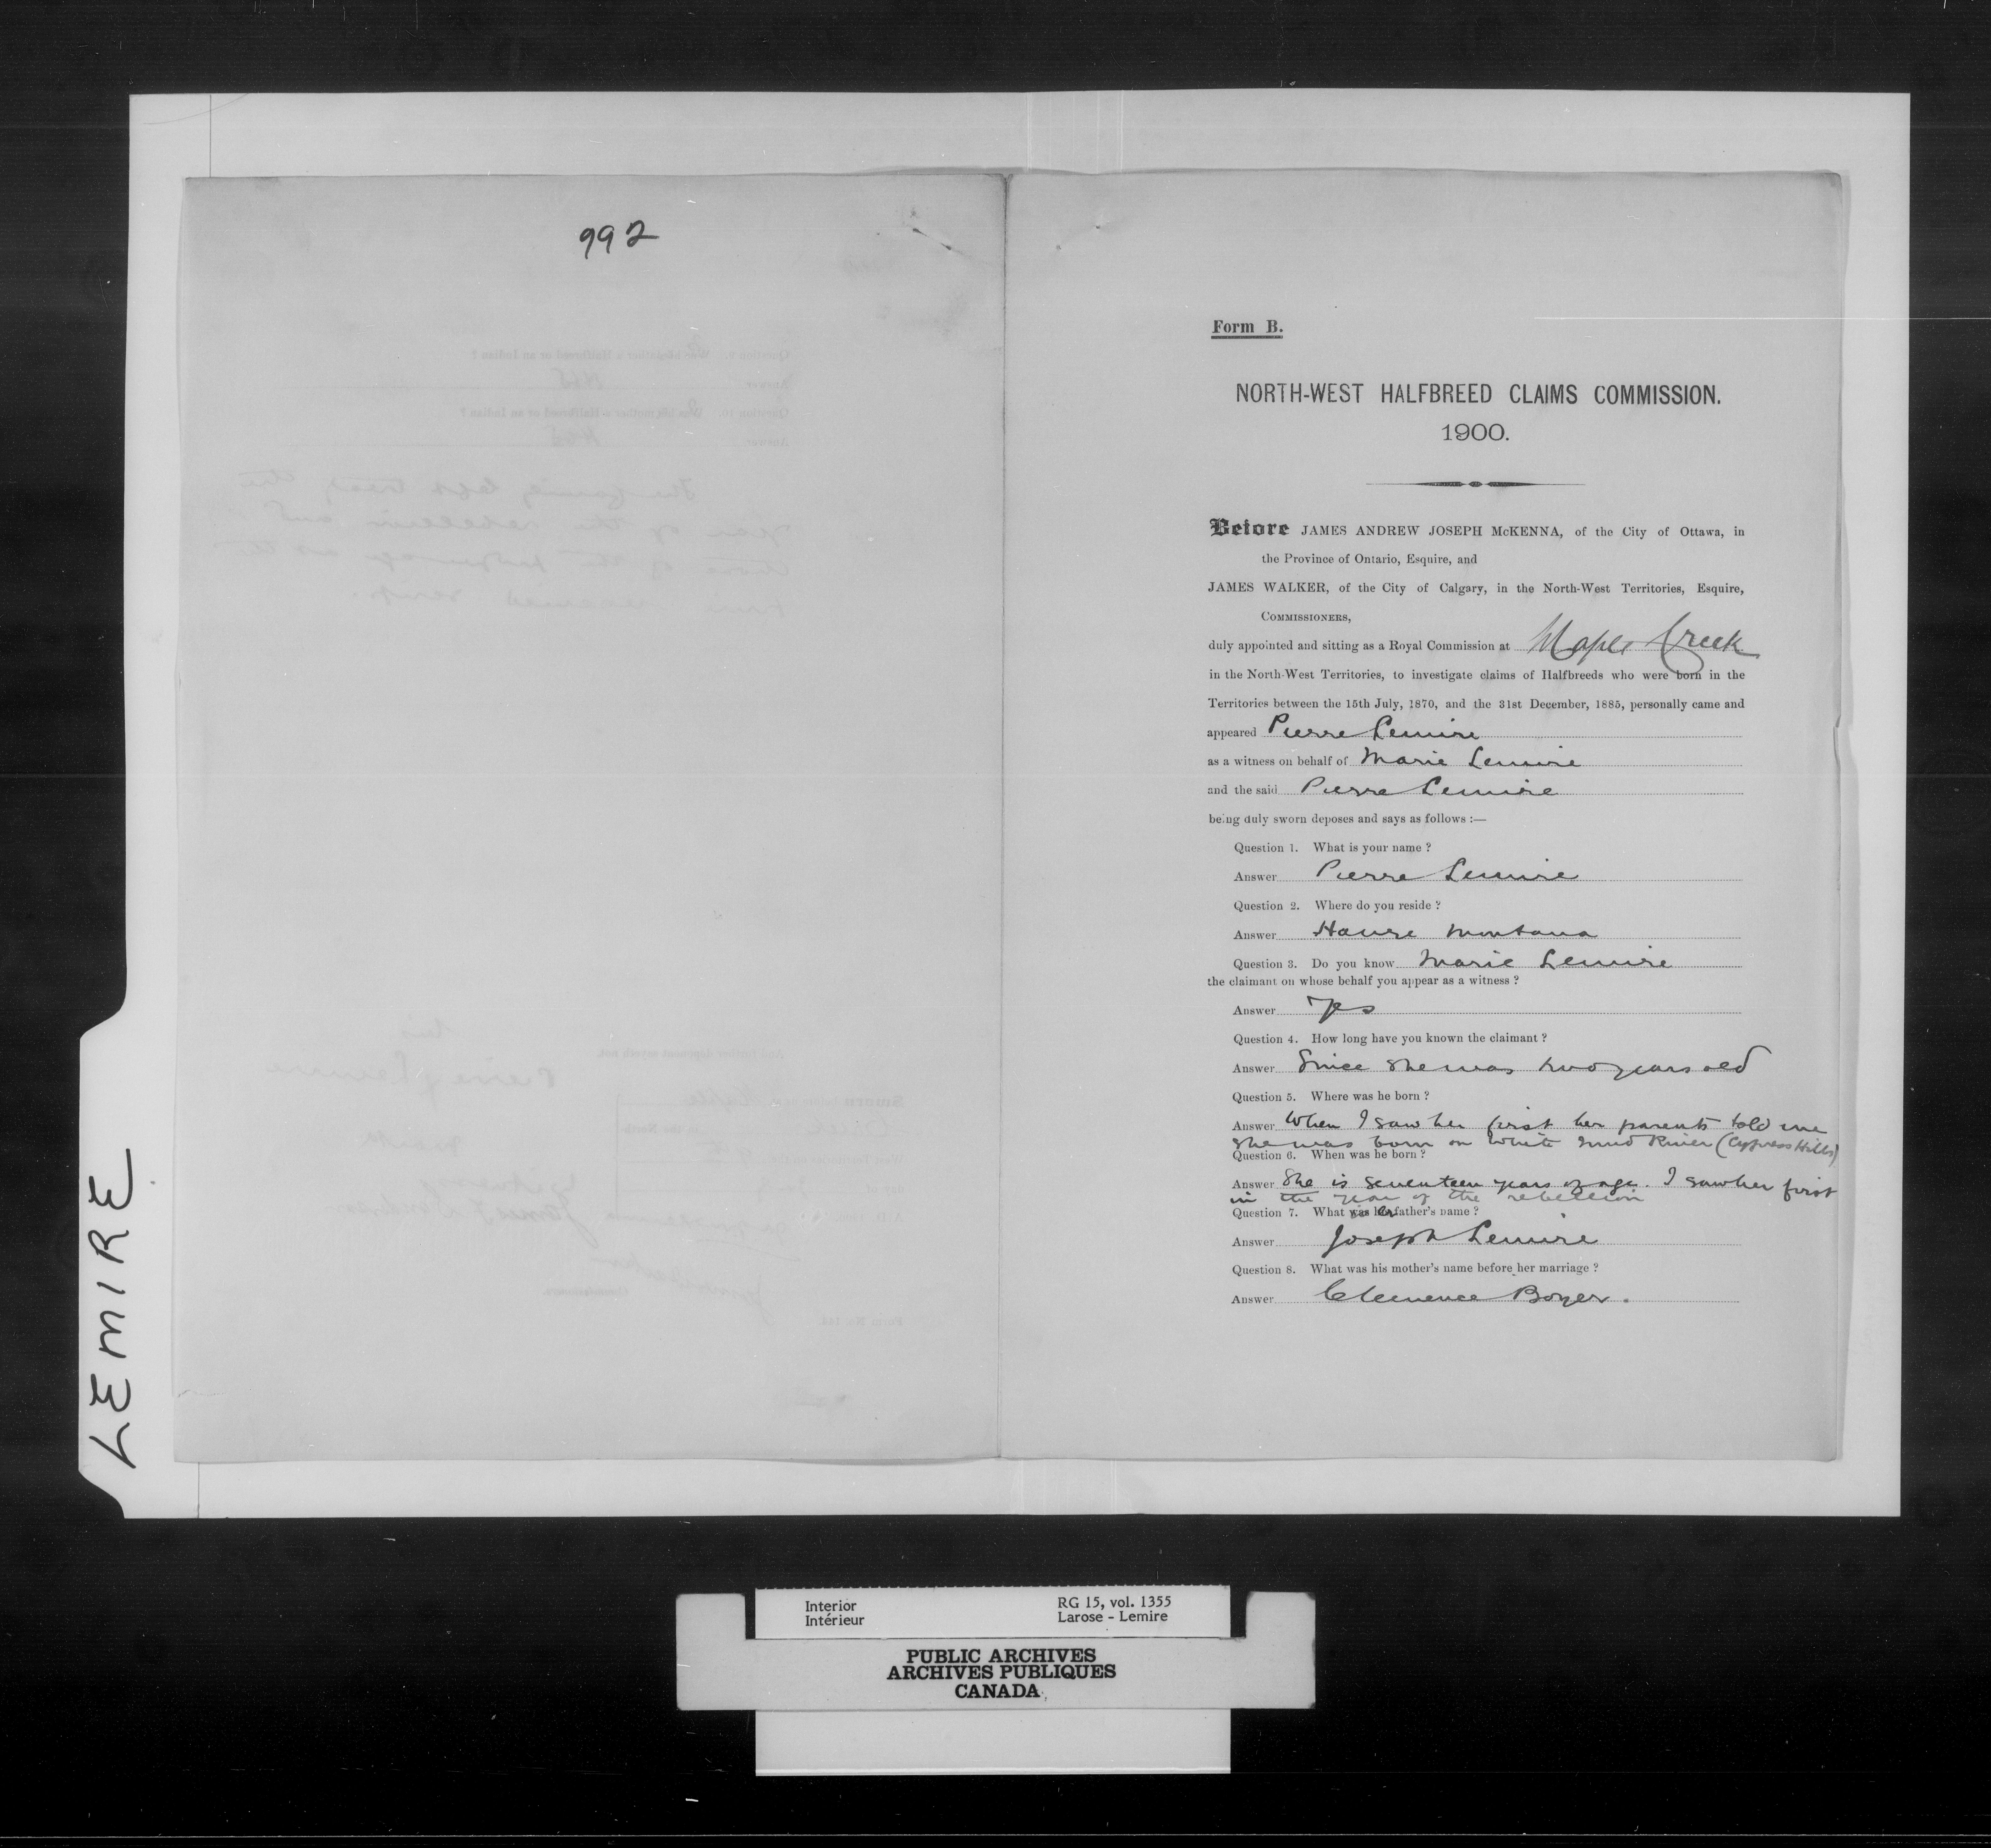 992
Form B.
NORTH-WEST HALFBREED CLAIMS COMMISSION.
1900.
Before JAMES ANDREW JOSEPH McKENNA, of the City of Ottawa, in
the Province of Ontario, Esquire, and
JAMES WALKER, of the City of Calgary, in the North-West Territories, Esquire,
COMMISSIONERS,
duly appointed and sitting as a Royal Commission at Maple Creek
in the North-West Territories, to investigate claims of Halfbreeds who were born in the
Territories between the 15th July, 1870, and the 31st December, 1885, personally came and
appeared Pierre Lemire
as a witness on behalf of Marie Lemire
and the said Pierre Lemire
being duly sworn deposes and says as follows :—
Question 1. What is your name ?
Answer Pierre Lemire
Question 2. Where do you reside ?
Answer Havre Montana
Question 3. Do you know Marie Lemire
the claimant on whose behalf you appear as a witness ?
Answer Yes
Question 4. How long have you known the claimant ?
Answer Since she was two years old
Question 5. Where was he born ?
Answer When I saw her first her parents told me
she was born on White Mud River (Cypress Hills)
Question 6. When was he born ?
Answer She is seventeen years of age. I saw her first
in the year of the rebellion
Question 7. What is her father's name ?
Answer Joseph Lemire
Question 8. What was his mother's name before her marriage ?
Answer Clemence Boyer.
LEMIRE
Interior
Intérieur
RG 15, vol. 1355
Larose - Lemire
PUBLIC ARCHIVES
ARCHIVES PUBLIQUES
CANADA